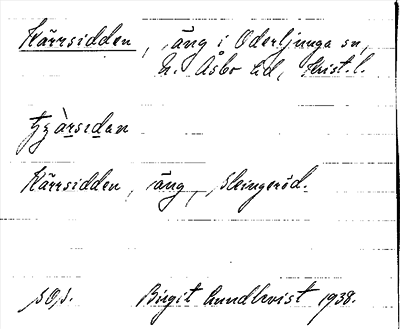 Kärrsidden, äng i Oderljunga sn,
N. Åsbo hd, Krist. l.
Kärrsidden, äng, Skingeröd.
SOJ. Birgit Lundkvist 1938.